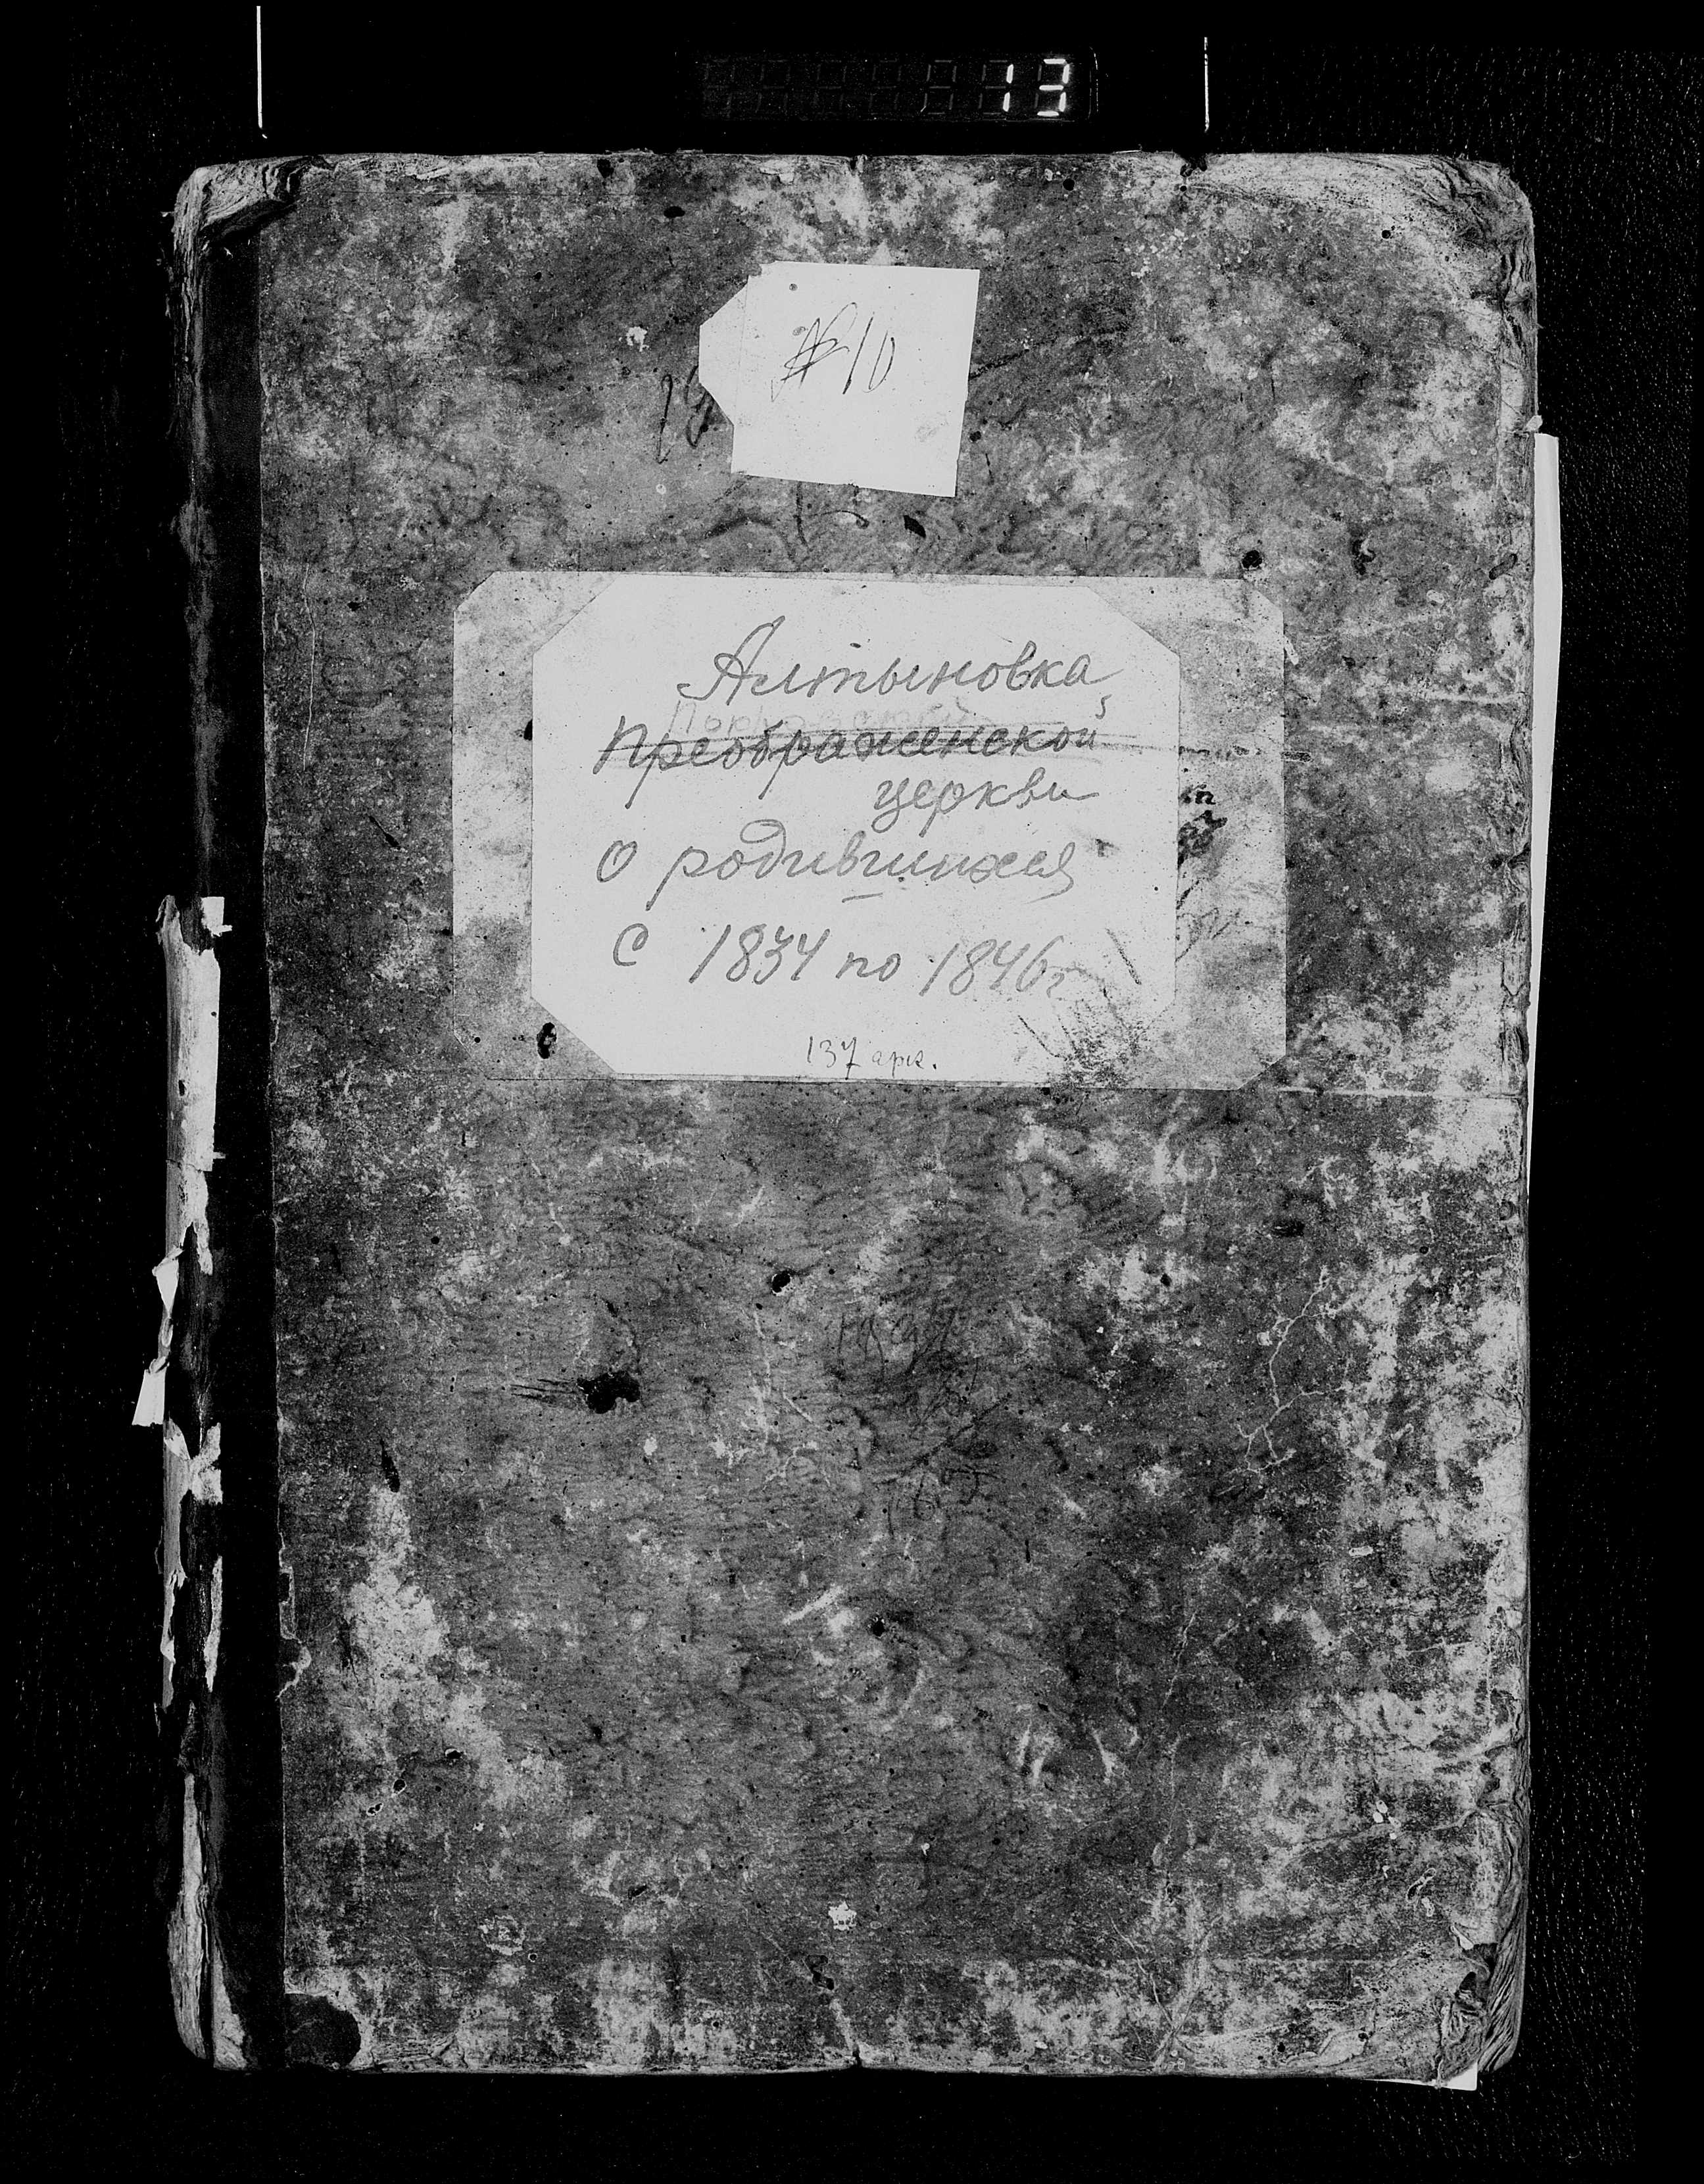 13
№10
19
Алтыновка,
Преображенской
церкви
О родившихся
С 1834 по 1846г
137 арк.